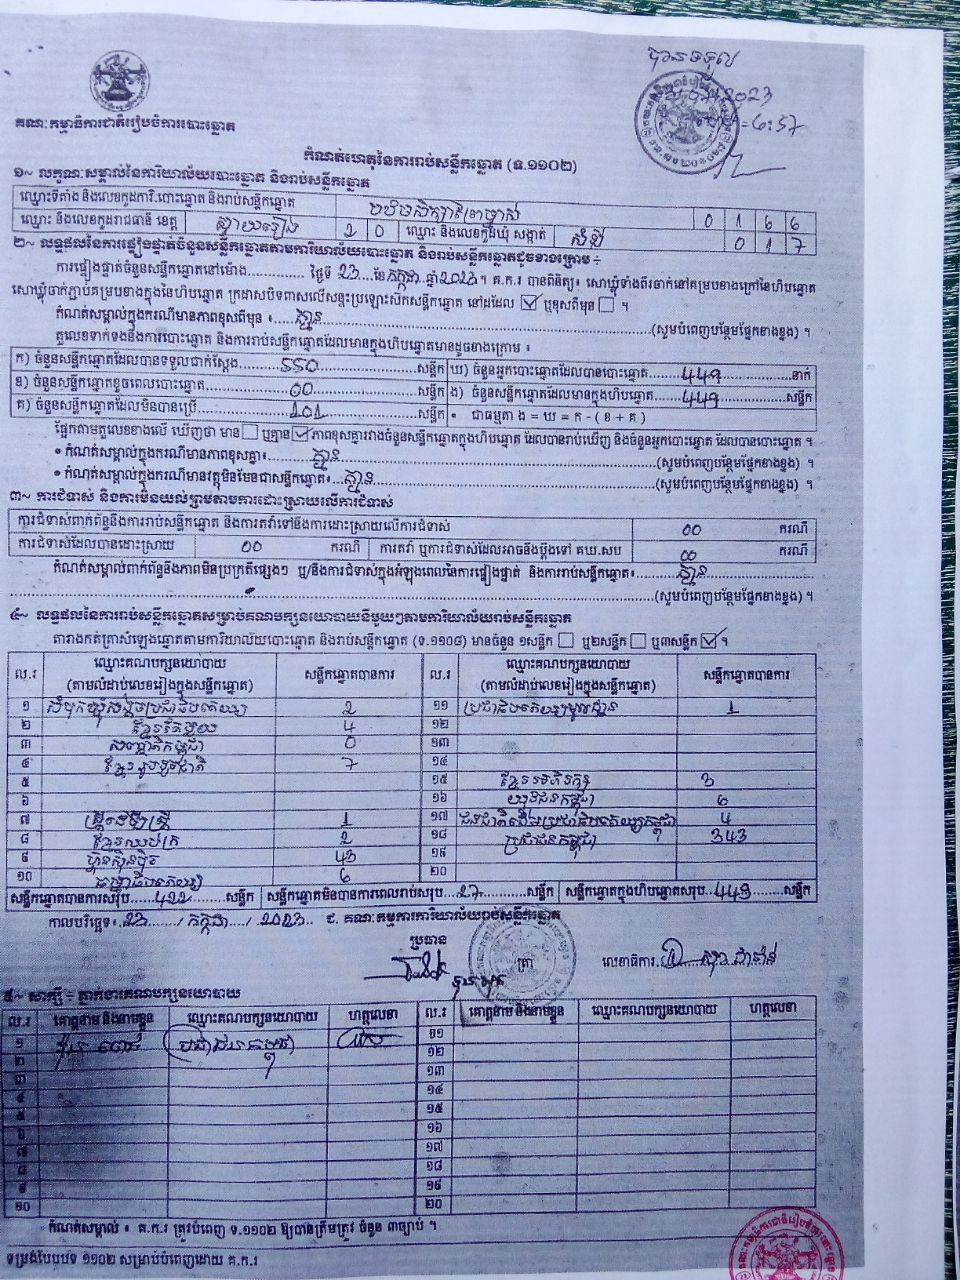 បានទទួល
2023
គណៈកម្មាធិការជាតិរៀបចំការបោះឆ្នោត
កំណត់ហេតុនៃការរាប់សន្លឹកឆ្នោត (ទ.១១០២)
១~ លក្ខណៈសម្គាល់នៃការិយាល័យបោះឆ្នោត និងរាប់សន្លឹកឆ្នោត
ឈ្មោះទីតាំង និងលេខកូដការិ.បោះឆ្នោត និងរាប់សន្លឹកឆ្នោត 0 1 6 6
ឈ្មោះ និងលេខកូដរាជធានី ខេត្ត ស្វាយរៀង 2 0 ឈ្មោះ និងលេខកូដឃុំ សង្កាត់ 0 1 7
២~ លទ្ធផលនៃការផ្ទៀងផ្ទាត់ចំនួនសន្លឹកឆ្នោតតាមការិយាល័យបោះឆ្នោត និងរាប់សន្លឹកឆ្នោតដូចខាងក្រោម ÷
ការផ្ទៀងផ្ទាត់ចំនួនសន្លឹកឆ្នោតនៅម៉ោង............... ថ្ងៃទី 23 ...ខែ កក្កដា ឆ្នាំ 2023។ គ.ក.រ បានពិនិត្យ៖ សោឃ្លុំទាំងពីរចាក់នៅគម្របខាងក្រៅនៃហិបឆ្នោត
សោឃ្លុំចាក់ភ្ជាប់គម្របខាងក្នុងនៃហិបឆ្នោត ក្រដាសបិទពាសលើសន្ទះប្រឡោះសិកសន្លឹកឆ្នោត នៅដដែល ☑ ឬខុសពីមុន ☐ ។
កំណត់សម្គាល់ក្នុងករណីមានភាពខុសពីមុន ៖ គ្មាន (សូមបំពេញបន្ថែមផ្នែកខាងខ្នង) ។
តួលេខទាក់ទងនឹងការបោះឆ្នោត និងការរាប់សន្លឹកឆ្នោតដែលមានក្នុងហិបឆ្នោតមានដូចខាងក្រោម ៖
ក) ចំនួនសន្លឹកឆ្នោតដែលបានទទួលជាក់ស្តែង 550 សន្លឹក ឃ) ចំនួនអ្នកបោះឆ្នោតដែលបានបោះឆ្នោត 449 នាក់
ខ) ចំនួនសន្លឹកឆ្នោតខូចពេលបោះឆ្នោត 00 សន្លឹក ង) ចំនួនសន្លឹកឆ្នោតដែលមានក្នុងហិបឆ្នោត 449 សន្លឹក
គ) ចំនួនសន្លឹកឆ្នោតដែលមិនបានប្រើ 101 សន្លឹក • ជាធម្មតា ង = ឃ = ក - ( ខ + គ )
ផ្អែកតាមតួលេខខាងលើ ឃើញថា មាន ☐ ឬគ្មាន ☑ ភាពខុសគ្នារវាងចំនួនសន្លឹកឆ្នោតក្នុងហិបឆ្នោត ដែលបានរាប់ឃើញ និងចំនួនអ្នកបោះឆ្នោត ដែលបានបោះឆ្នោត ។
• កំណត់សម្គាល់ក្នុងករណីមានភាពខុសគ្នា៖ គ្មាន (សូមបំពេញបន្ថែមផ្នែកខាងខ្នង) ។
• កំណត់សម្គាល់ក្នុងករណីមានវត្ថុមិនមែនជាសន្លឹកឆ្នោត៖ គ្មាន (សូមបំពេញបន្ថែមផ្នែកខាងខ្នង) ។
៣~ ការជំទាស់ និងការមិនយល់ព្រមតាមការដោះស្រាយលើការជំទាស់
ការជំទាស់ពាក់ព័ន្ធនឹងការរាប់សន្លឹកឆ្នោត និងការតវ៉ាទៅនឹងការដោះស្រាយលើការជំទាស់ 00 ករណី
ការជំទាស់ដែលបានដោះស្រាយ 00 ករណី ការតវ៉ា ឬការជំទាស់ដែលអាចនឹងប្តឹងទៅ គឃ.សប 00 ករណី
កំណត់សម្គាល់ពាក់ព័ន្ធនឹងភាពមិនប្រក្រតីផ្សេងៗ ឬ/និងការជំទាស់ក្នុងអំឡុងពេលនៃការផ្ទៀងផ្ទាត់ និងការរាប់សន្លឹកឆ្នោត៖ គ្មាន
(សូមបំពេញបន្ថែមផ្នែកខាងខ្នង) ។
៤~ លទ្ធផលនៃការរាប់សន្លឹកឆ្នោតសម្រាប់គណបក្សនយោបាយនីមួយៗតាមការិយាល័យរាប់សន្លឹកឆ្នោត
តារាងកត់ត្រាសំឡេងឆ្នោតតាមការិយាល័យបោះឆ្នោត និងរាប់សន្លឹកឆ្នោត (ទ.១១០៨) មានចំនួន ១សន្លឹក ☐ ឬ២សន្លឹក ☐ ឬ៣សន្លឹក ☑ ។
ល.រ ឈ្មោះគណបក្សនយោបាយ (តាមលំដាប់លេខរៀងក្នុងសន្លឹកឆ្នោត) សន្លឹកឆ្នោតបានការ ល.រ ឈ្មោះគណបក្សនយោបាយ (តាមលំដាប់លេខរៀងក្នុងសន្លឹកឆ្នោត) សន្លឹកឆ្នោតបានការ
១ សំបុកឃ្មុំសង្គមប្រជាធិបតេយ្យ 2 ១១ ប្រជាធិបតេយ្យមូលដ្ឋាន 1
២ ខ្មែរតែមួយ 4 ១២
៣ សញ្ជាតិកម្ពុជា 0 ១៣
៤ ខ្មែររួបរួមជាតិ 7 ១៤
៥ ១៥ ខ្មែរអភិរក្ស 3
៦ ១៦ យុវជនកម្ពុជា 6
៧ ដើម្បីស្ត្រី 1 ១៧ ជនជាតិដើមប្រជាធិបតេយ្យកម្ពុជា 4
៨ ខ្មែរឈប់ក្រ 2 ១៨ ប្រជាជនកម្ពុជា 343
៩ ហ៊្វុនស៊ិនប៉ិច 43 ១៩
១០ ធម្មាធិបតេយ្យ 6 ២០
សន្លឹកឆ្នោតបានការសរុប 422 សន្លឹក សន្លឹកឆ្នោតមិនបានការពេលរាប់សរុប 27 សន្លឹក សន្លឹកឆ្នោតក្នុងហិបឆ្នោតសរុប 449 សន្លឹក
កាលបរិច្ឆេទ៖ 23 / កក្កដា / 2023 ជ. គណៈកម្មការការិយាល័យរាប់សន្លឹកឆ្នោត
ប្រធាន
ត្រា លេខាធិការ
៥~ សាក្សី ÷ ភ្នាក់ងារគណបក្សនយោបាយ
ល.រ គោត្តនាម និងនាមខ្លួន ឈ្មោះគណបក្សនយោបាយ ហត្ថលេខា ល.រ គោត្តនាម និងនាមខ្លួន ឈ្មោះគណបក្សនយោបាយ ហត្ថលេខា
១ ប្រជាជនកម្ពុជា ១១
២ ១២
៣ ១៣
៤ ១៤
៥ ១៥
៦ ១៦
៧ ១៧
៨ ១៨
៩ ១៩
១០ ២០
កំណត់សម្គាល់ ៖ គ.ក.រ ត្រូវបំពេញ ទ.១១០២ ឱ្យបានត្រឹមត្រូវ ចំនួន ៣ច្បាប់ ។
ទម្រង់បែបបទ ១១០២ សម្រាប់បំពេញដោយ គ.ក.រ